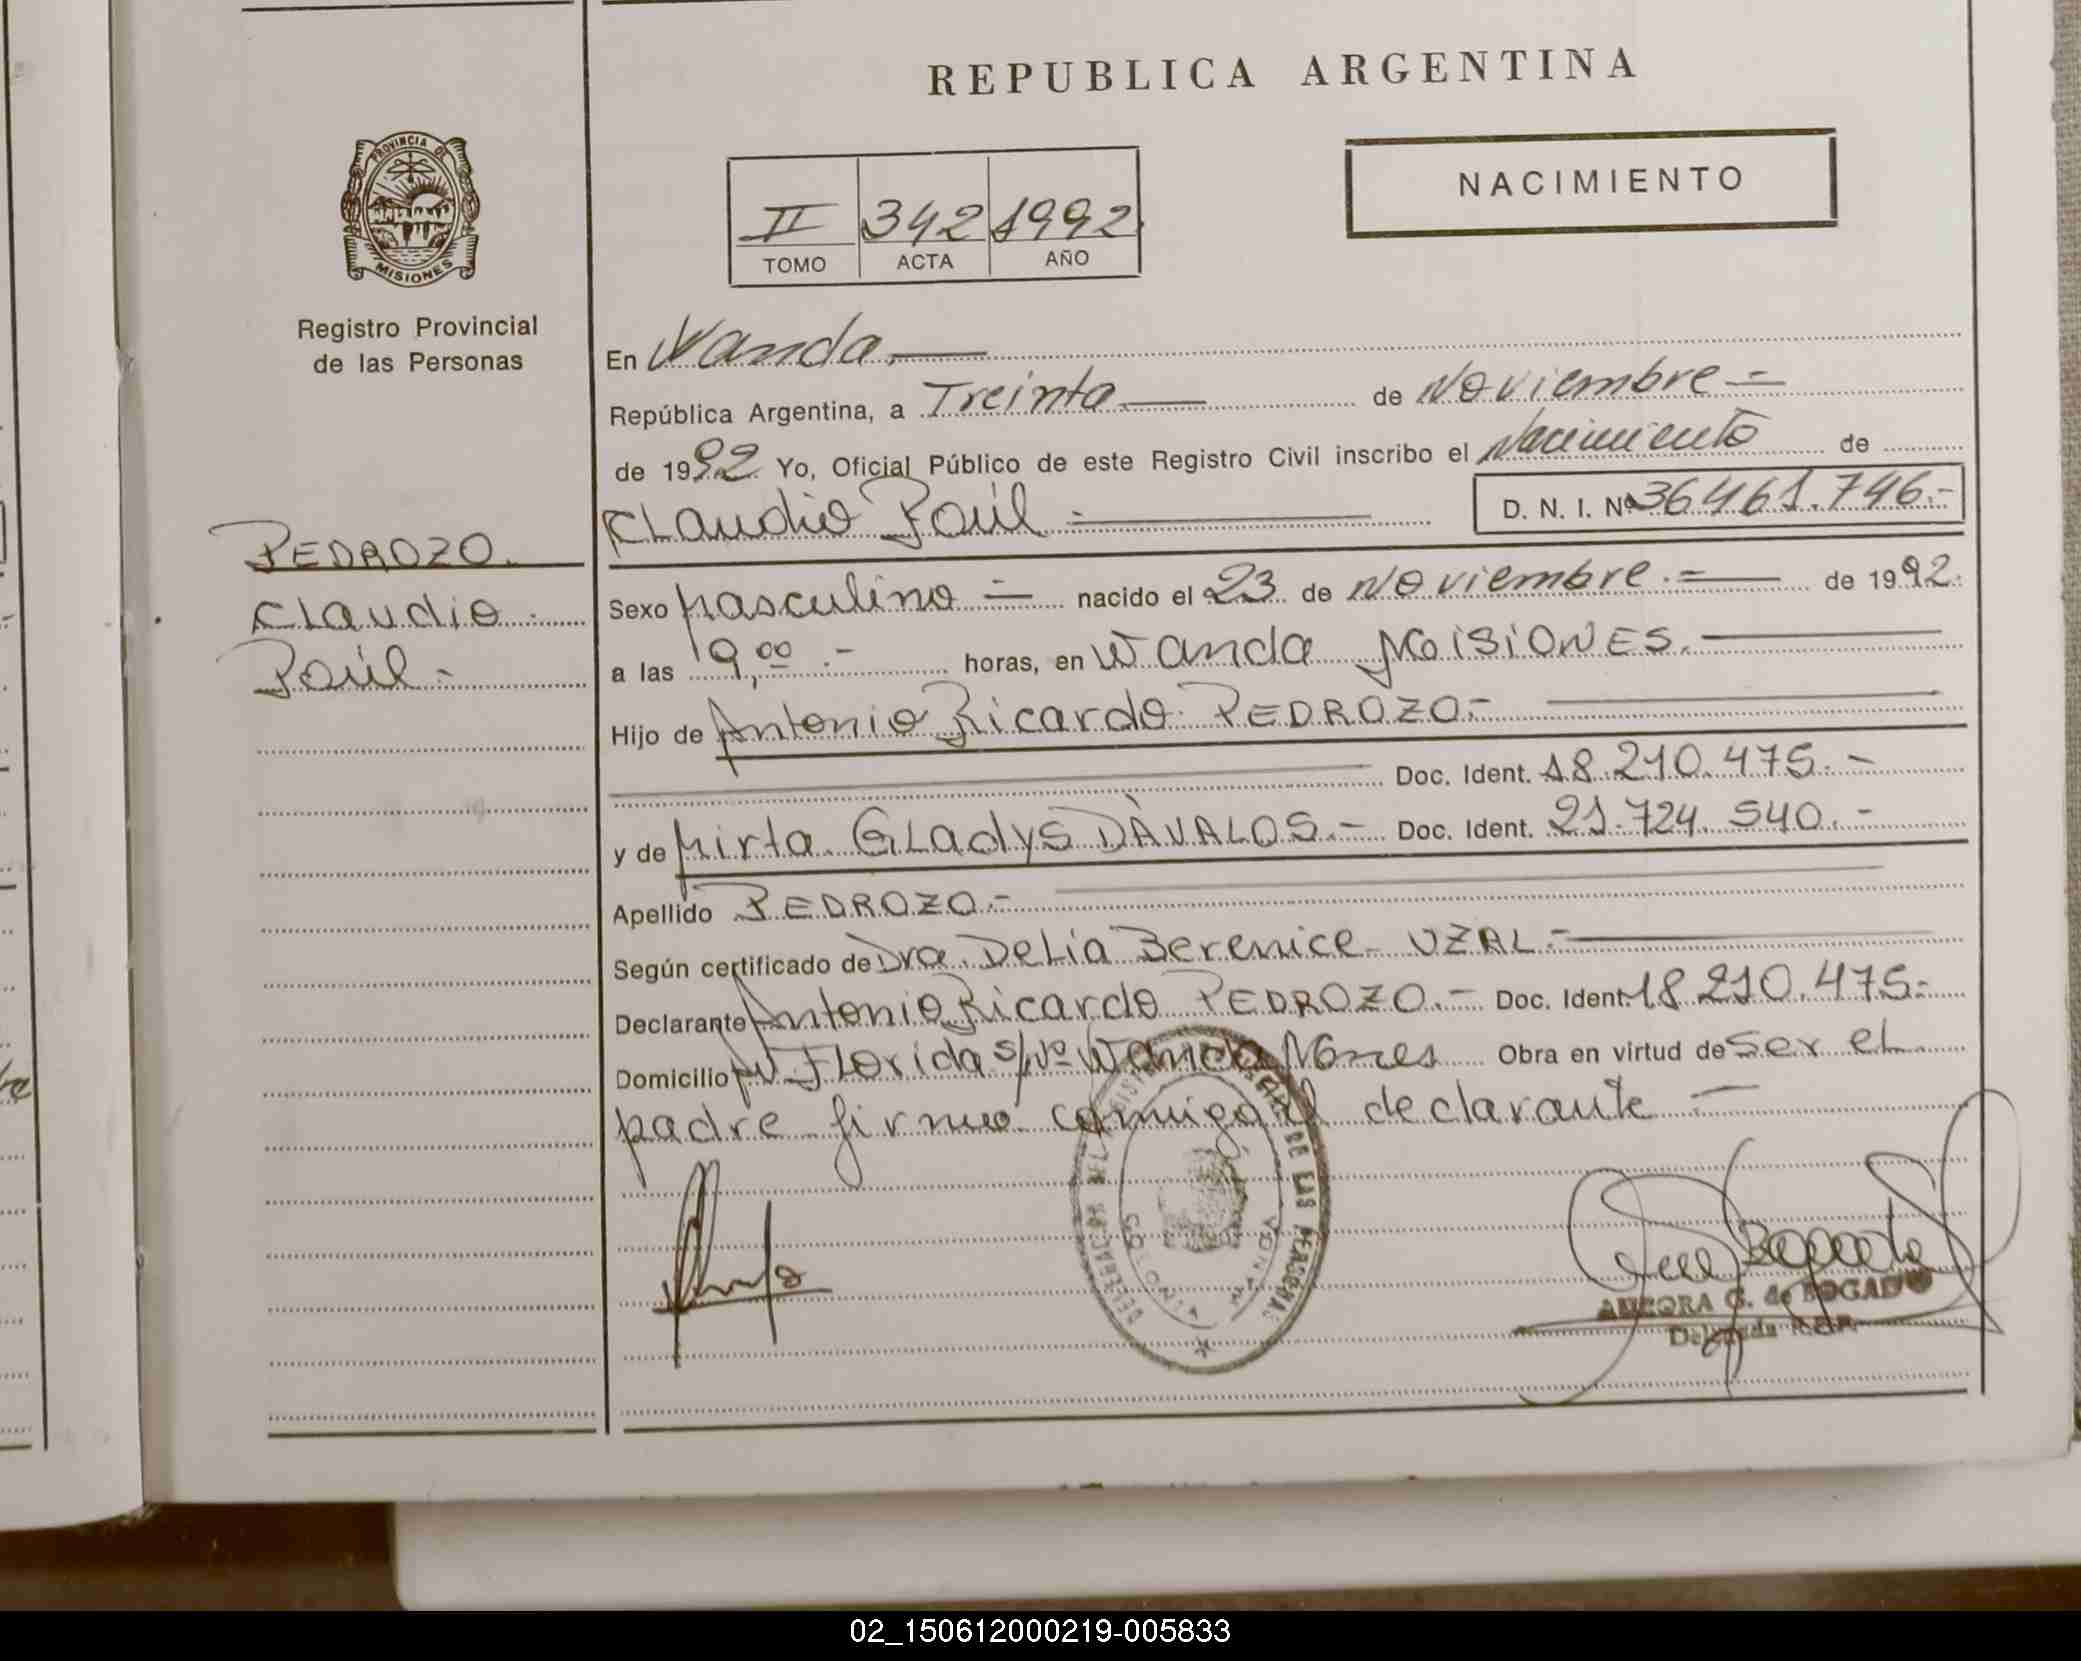 REPUBLICA ARGENTINA
PROVINCIA DE
MISIONES
Registro Provincial
de las Personas
II 342 1992
TOMO ACTA AÑO
NACIMIENTO
PEDROZO.
Claudio
Raúl.-
En Wanda.
República Argentina, a Treinta de Noviembre.-
de 1992 Yo, Oficial Público de este Registro Civil inscribo el Nacimiento de
Claudio Raúl.- D. N. I. Nº 36461.746.-
Sexo Masculino.- nacido el 23 de Noviembre.- de 1992.
a las 19,00.- horas, en Wanda MISIONES.
Hijo de Antonio Ricardo PEDROZO.-
Doc. Ident. 18.210.475.-
y de Mirta Gladys DÀVALOS.- Doc. Ident. 21.724.540.-
Apellido PEDROZO.-
Según certificado de Dra. Delia Berenice UZAL.-
Declarante Antonio Ricardo PEDROZO.- Doc. Ident. 18 210.475.-
Domicilio Av Florida s/nº Wanda Mnes Obra en virtud de Ser el
padre firma conmigo el declarante
DE LAS PERSONAS
WANDA
MISIONES
AURORA G. de BOGADO
Delegada
02_150612000219-005833